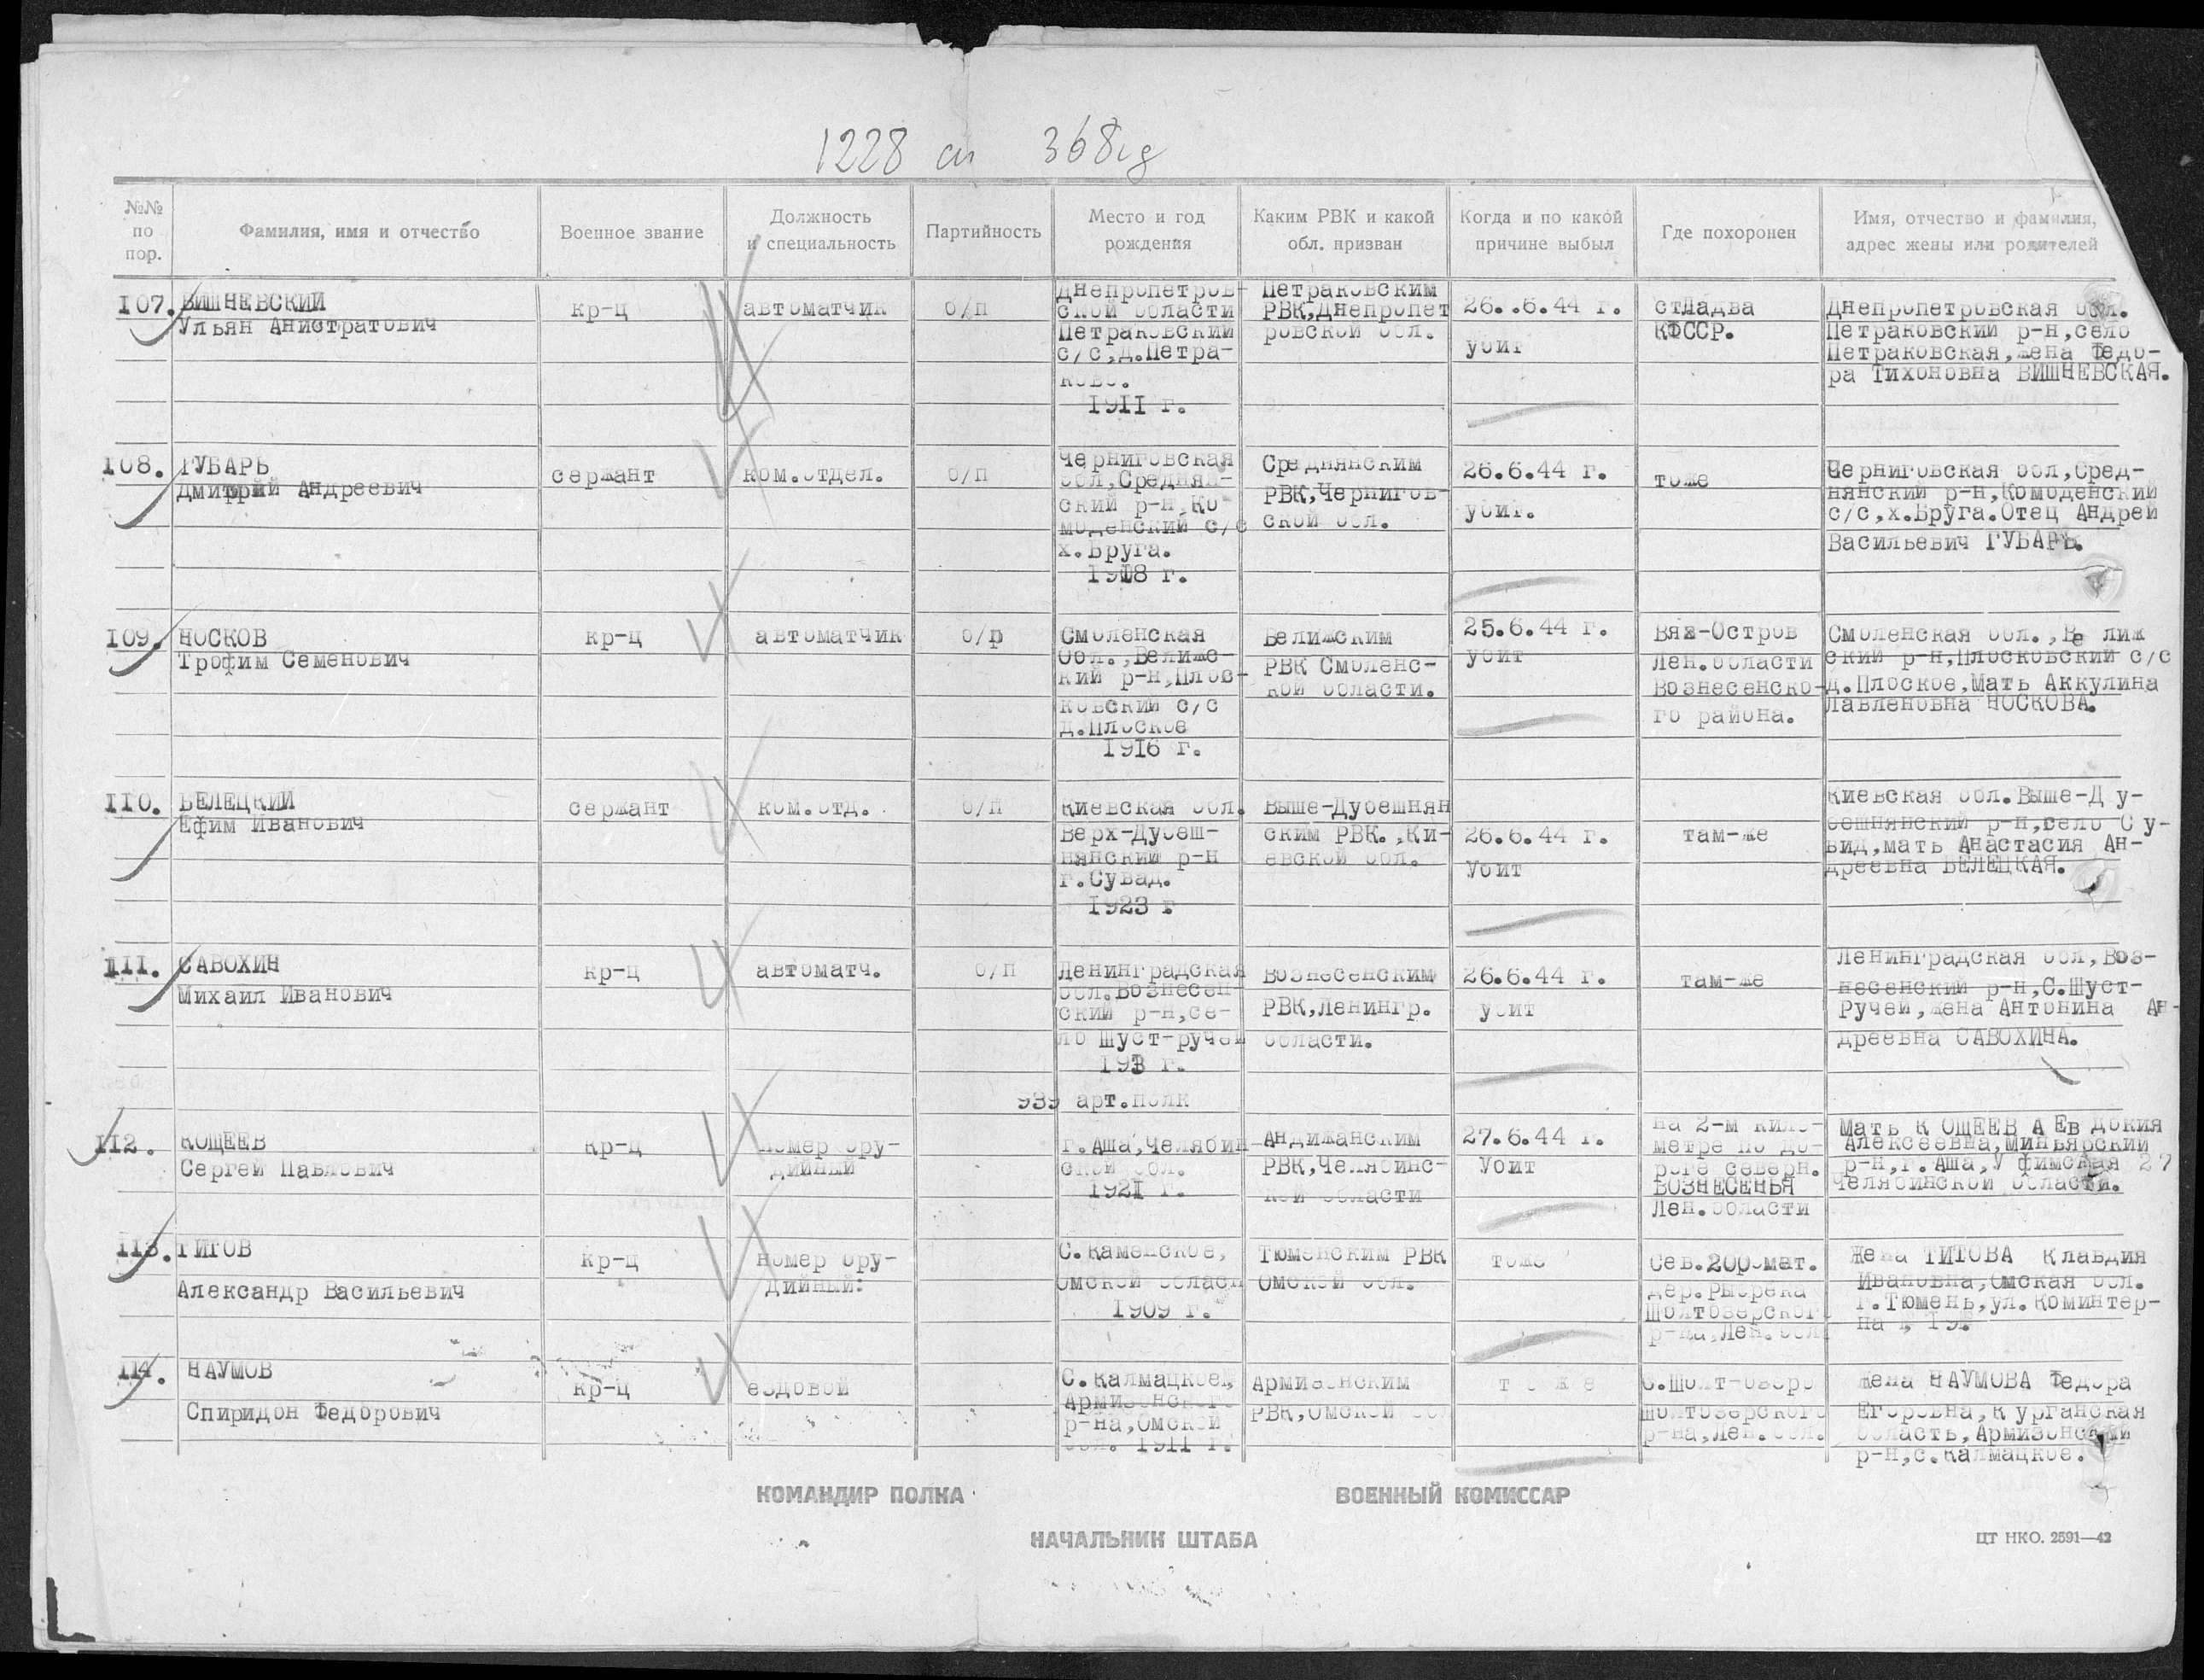 1228 сп 368 сд
№№ по пор.
Фамилия, имя и отчество
Военное звание
Должность и специальность
Партийность
Место и год рождения
Каким РВК и какой обл. призван
Когда и по какой причине выбыл
Где похоронен
Имя, отчество и фамилия, адрес жены или родителей
107.
ВИШНЕВСКИЙ
Ульян Анистратович
кр-ц
автоматчик
б/п
Днепропетров-
ской области
Петраковский
с/с,д.Петра-
ково.
1911 г.
Петраковским
РВК,Днепропет
ровской обл.
26..6.44 г.
убит
ст.Ладва
КФССР.
Днепропетровская обл.
Петраковский р-н,село
Петраковская,жена Федо-
ра Тихоновна ВИШНЕВСКАЯ.
108.
ГУБАРЬ
Дмитрий Андреевич
сержант
ком.отдел.
б/п
Черниговская
обл,Среднян-
ский р-н,Ко
моденский с/с
х.Бруга.
1918 г.
Среднянским
РВК,Чернигов-
ской обл.
26.6.44 г.
убит.
тоже
Черниговская обл,Сред-
нянский р-н,Комоденский
с/с,х.Бруга.Отец Андрей
Васильевич ГУБАРЬ.
109.
НОСКОВ
Трофим Семенович
кр-ц
автоматчик
б/р
Смоленская
Обл.,Велижс-
кий р-н,Плос-
ковский с/с
д.Плоское
1916 г.
Велижским
РВК Смоленс-
кой области.
25.6.44 г.
убит
Вяж-Остров
Лен.области
Вознесенско-
го района.
Смоленская обл.,Ве лиж
ский р-н,Плосковский с/с
д.Плоское,Мать Аккулина
Павленовна НОСКОВА.
110.
БЕЛЕЦКИЙ
Ефим Иванович
сержант
ком.отд.
б/п
Киевская обл.
Верх-Дубеш-
нянский р-н
г.Сувад.
1923 г
Выше-Дубешнян
ским РВК.,Ки-
евской обл.
26.6.44 г.
Убит
там-же
Киевская обл.Выше-Д у-
бешнянский р-н,село С у-
вид,мать Анастасия Ан-
дреевна БЕЛЕЦКАЯ.
111.
САВОХИН
Михаил Иванович
кр-ц
автоматч.
б/п
Ленинградская
обл.Вознесен
ский р-н,се-
ло Шуст-ручей
Вознесенским
РВК,Ленингр.
области.
26.6.44 г.
убит
там-же
Ленинградская обл,Воз-
несенский р-н,С.Шуст-
Ручей,жена Антонина Ан-
дреевна САВОХИНА.
939 арт.полк
112.
КОЩЕЕВ
Сергей Павлович
кр-ц
номер ору-
дийный
г.Аша,Челябин-
ской обл.
1921 г.
Андижанским
РВК,Челябинс-
кой области
27.6.44 г.
Убит
на 2-м кило-
метре по до-
роге северн.
ВОЗНЕСЕНЬЯ
Лен.области
Мать К ОЩЕЕВ А Ев докия
Алексеевна,Миньярский
р-н,г.Аша,У фимская 27
Челябинской области.
113.
ТИТОВ
Александр Васильевич
кр-ц
номер ору-
дийный:
С.Каменское,
Омской област
1909 г.
Тюменским РВК
Омской обл.
тоже
Сев.200 мет.
дер.Рыбрека
Шолтозерског
р-на,Лен.обл
Жена ТИТОВА Клавдия
Ивановна,Омская обл.
г.Тюмень,ул.Коминтер-
114.
НАУМОВ
Спиридон Федорович
кр-ц
ездовой
С.Калмацкое,
Армизонского
р-на,Омской
обл. 1911 г.
Армизонским
РВК,Омской об
т о ж е
С.Шолт-озеро
Шолтозерского
р-на,Лен.обл.
Жена НАУМОВА Федора
Егоровна,К урганская
область,Армизонский
р-н,с.Калмацкое.
КОМАНДИР ПОЛКА
ВОЕННЫЙ КОМИССАР
НАЧАЛЬНИК ШТАБА
ЦТ НКО. 2591—42